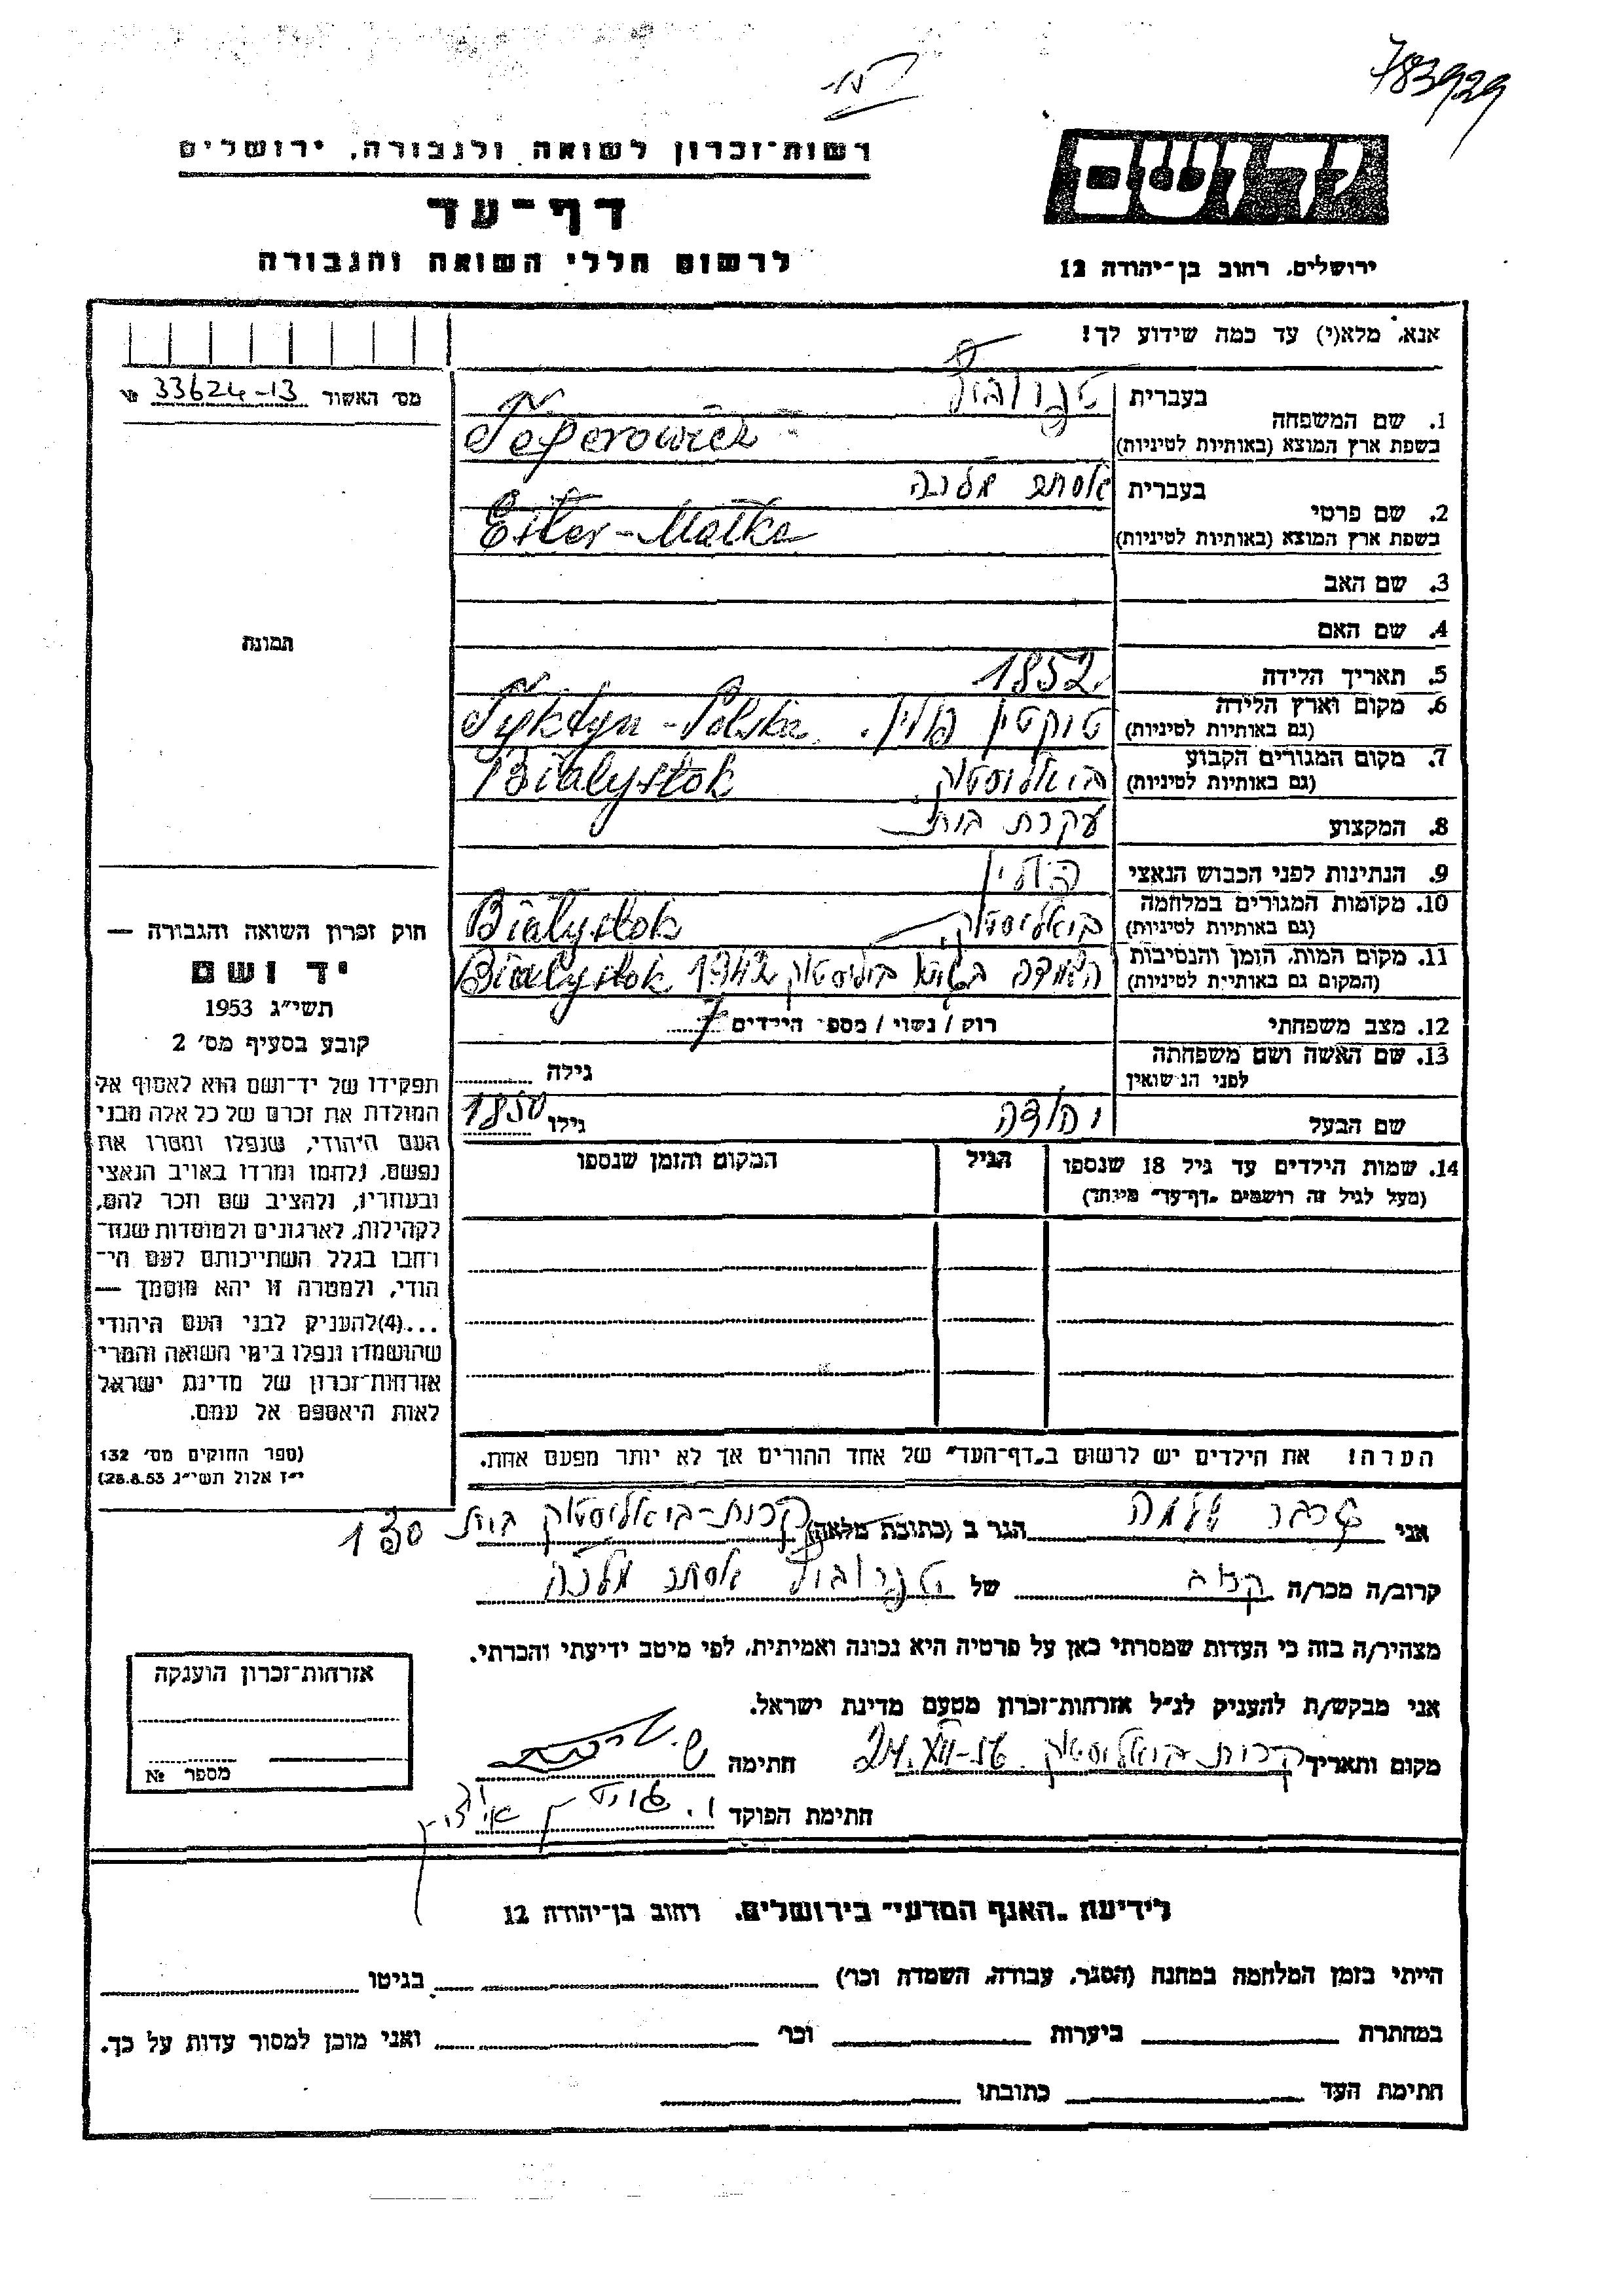 783929
רשות־זכרון לשואה ולגבורה, ירושלים
דף־עד
לרשום חללי השואה והגבורה
ידושם
ירושלים, רחוב בן־יהודה 12
אנא, מלא(י) עד כמה שידוע לך!
מס' האשור 33624-13 №
1. שם המשפחה
בעברית
בשפת ארץ המוצא (באותיות לטיניות) Teperowicz
2. שם פרטי
בעברית אסתר מלכה
בשפת ארץ המוצא (באותיות לטיניות) Ester-Malka
3. שם האב
4. שם האם
תמונה
5. תאריך הלידה 1852
6. מקום וארץ הלידה
(גם באותיות לטיניות) טוקטין פולין. Tyktyn-Polska
7. מקום המגורים הקבוע
(גם באותיות לטיניות) ביאליסטוק Białystok
8. המקצוע עקרת בית
9. הנתינות לפני הכבוש הנאצי פולין
10. מקומות המגורים במלחמה
(גם באותיות לטיניות) ביאליסטוק Białystok
11. מקום המות, הזמן והנסיבות
(המקום גם באותיית לטיניות) 1942 Białystok
12. מצב משפחתי רוק / נשוי / מספר הילדים 7
13. שם האשה ושם משפחתה
לפני הנישואין גילה
שם הבעל יהודה גילו 1850
14. שמות הילדים עד גיל 18 שנספו
(מעל לגיל זה רושמים „דף־עד" מיוחד)
הגיל
המקום והזמן שנספו
הערה! את הילדים יש לרשום ב„דף־העד" של אחד ההורים אך לא יותר מפעם אחת.
חוק זכרון השואה והגבורה —
יד ושם
תשי"ג 1953
קובע בסעיף מס' 2
תפקידו של יד־ושם הוא לאסוף אל
המולדת את זכרם של כל אלה מבני
העם היהודי, שנפלו ומסרו את
נפשם, נלחמו ומרדו באויב הנאצי
ובעוזריו, ולהציב שם וזכר להם,
לקהילות, לארגונים ולמוסדות שנח־
רחבו בגלל השתייכותם לעם הי־
הודי, ולמטרה זו יהא מוסמך —
...(4)להעניק לבני העם היהודי
שהושמדו ונפלו בימי השואה והמרי
אזרחות־זכרון של מדינת ישראל
לאות היאספם אל עמם.
(ספר החוקים מס' 132
י"ז אלול תשי"ג 28.8.53)
אני שלמה הגר ב (כתובת מלאה) קרית-ביאליסטוק בית 130
קרוב/ה מכר/ה קרוב של אסתר מלכה
מצהיר/ה בזה כי העדות שמסרתי כאן על פרטיה היא נכונה ואמיתית, לפי מיטב ידיעתי והכרתי.
אני מבקש/ת להעניק לנ"ל אזרחות־זכרון מטעם מדינת ישראל.
מקום ותאריך קרית ביאליסטוק 24.XII-56 חתימה
חתימת הפוקד
אזרחות־זכרון הוענקה
מספר №
לידיעת „האגף המדעי" בירושלים, רחוב בן־יהודה 12
הייתי בזמן המלחמה במחנה (הסגר, עבודה, השמדה וכו') בגיטו
במחתרת ביערות וכו' ואני מוכן למסור עדות על כך.
חתימת העד כתובתו